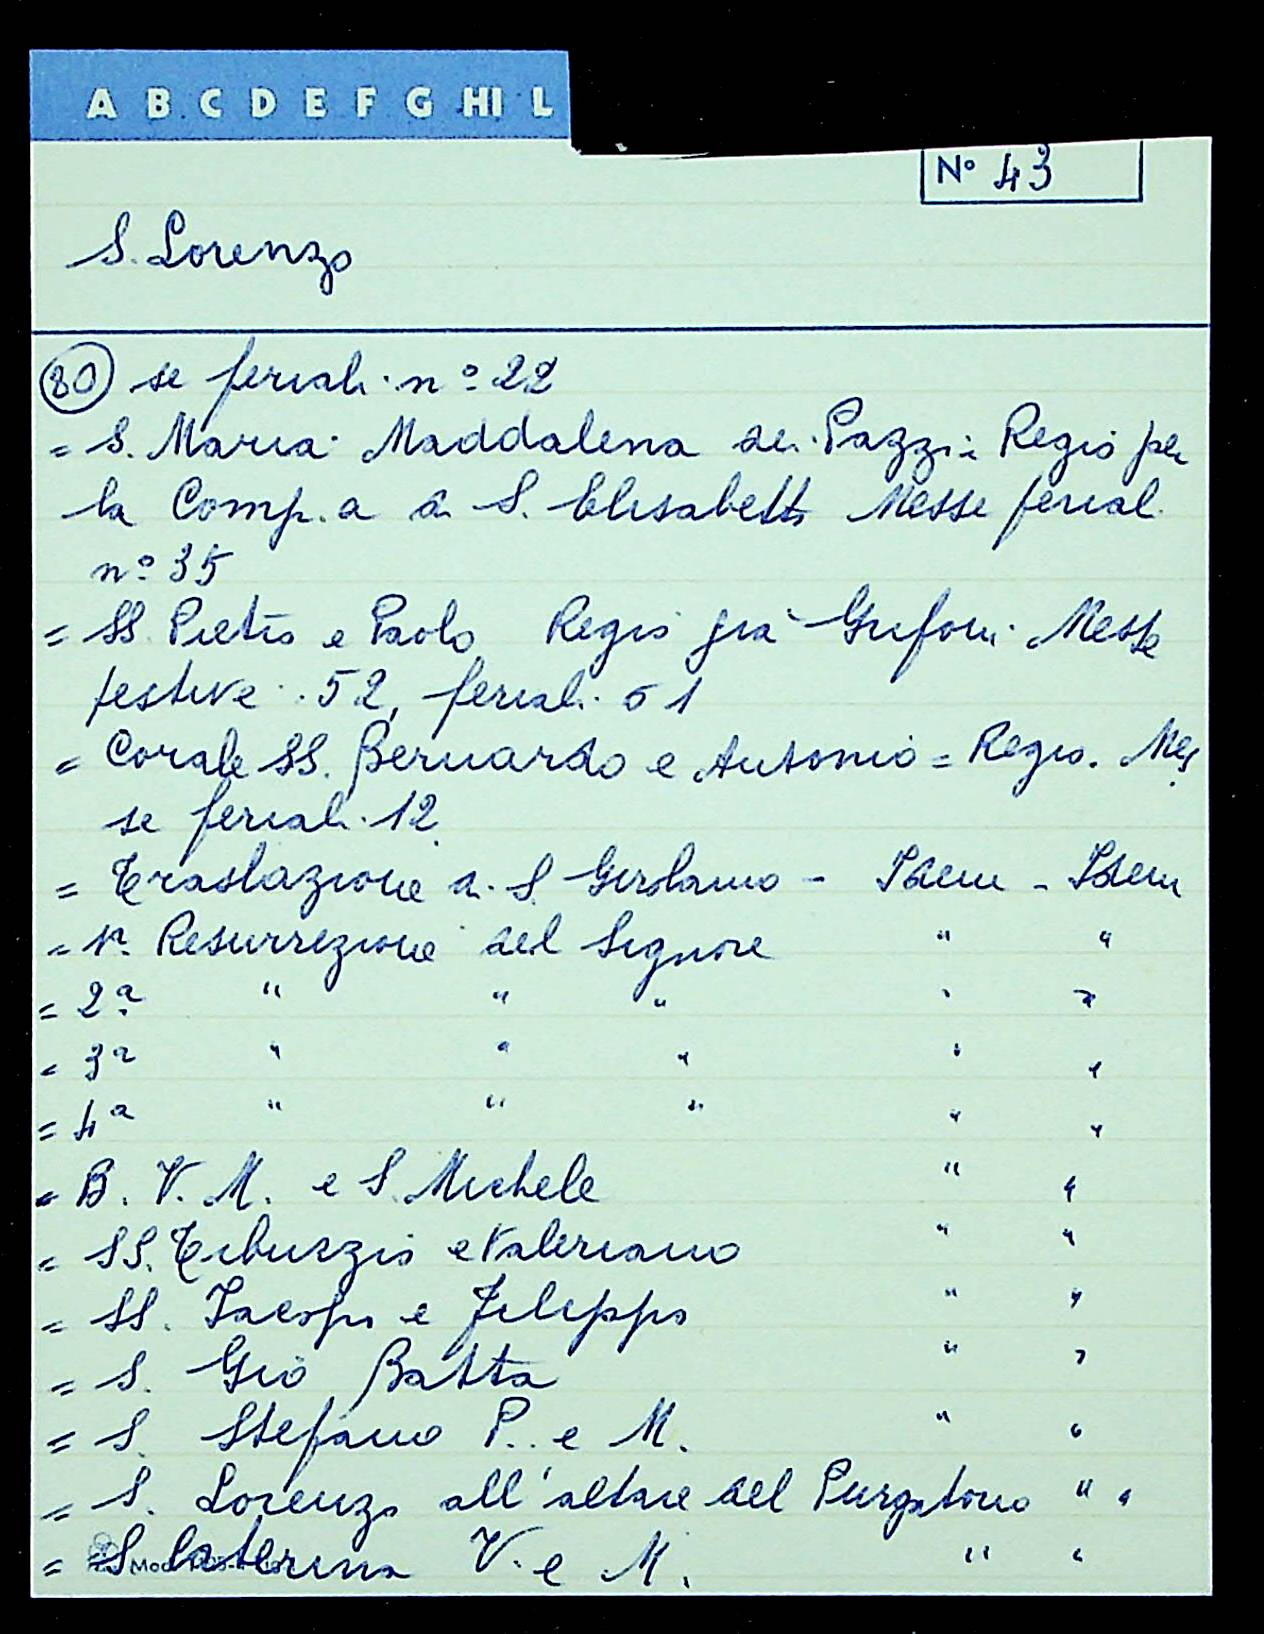 A B C D E F G HI L
N° 43
S. Lorenzo
80 se feriali n° 22
= S. Maria Maddalena dei Pazzi: Regio per
la Comp.a di S. Elisabetta Messe feriali
n° 35
= SS. Pietro e Paolo Regio già Grifoni Messe
festive 52, feriali 51
= Corale SS. Bernardo e Antonio = Regio. Mes
se feriali 12
= Traslazione di S. Girolamo - Idem - Idem
= 1a Resurrezione del Signore " "
= 2a " " " " "
= 3a " " " " "
= 4a " " " " "
= B. V. M. e S. Michele " "
= SS. Tiburzio e Valeriano " "
= SS. Jacopo e Filippo " "
= S. Gio Batta " "
= S. Stefano P. e M. " "
= S. Lorenzo all'altare del Purgatorio " "
= S. Caterina V. e M. " "